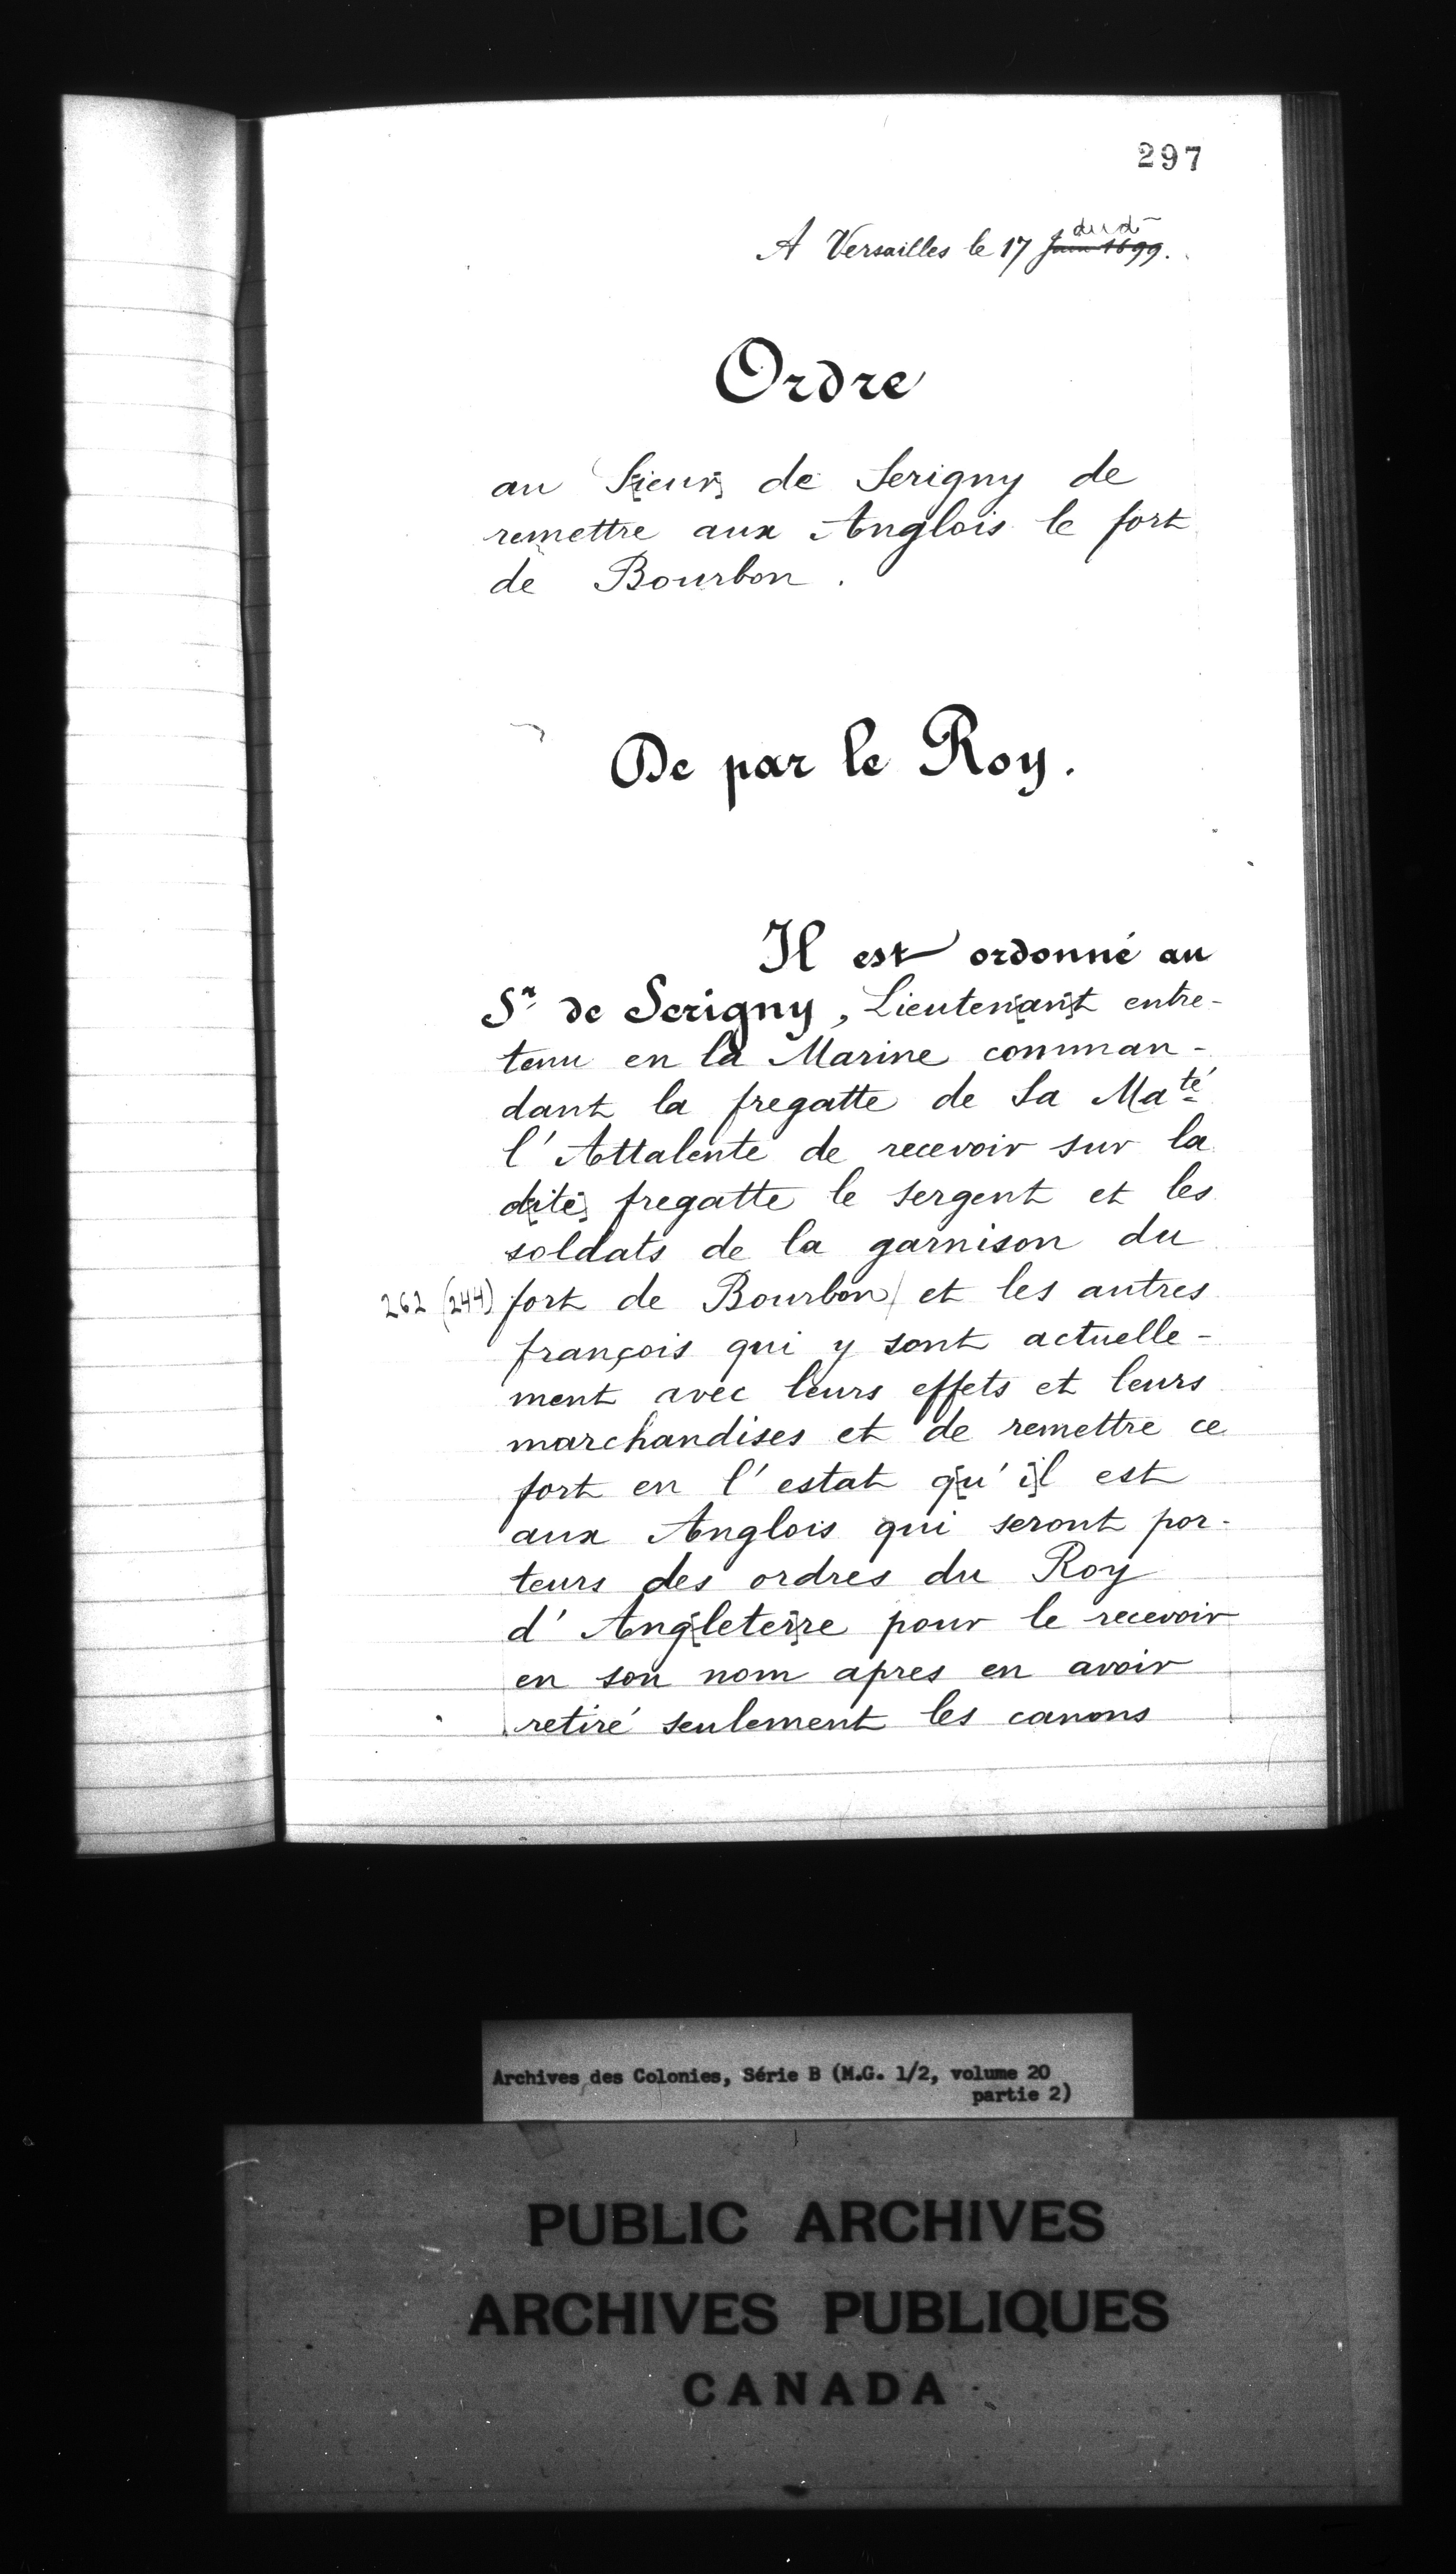 297
dud
A Versailles le 17 Juin 1699.
Ordre
au S[ieur] de Serigny de
remettre aux Anglois le fort
de Bourbon.
De par le Roy.
Il est ordonné au
Sr. de Serigny, Lieuten[an]t entre-
tenu en la Marine comman-
dant la fregatte de Sa Maté
l'Attalente de recevoir sur la
d[ite] fregatte le sergent et les
soldats de la garnison du
262 (244) fort de Bourbon/ et les autres
françois qui y sont actuelle-
ment avec leurs effets et leurs
marchandises et de remettre ce
fort en l'estat q[u'i]l est
aux Anglois qui seront por-
teurs des ordres du Roy
d'Ang[leter]re pour le recevoir
en son nom apres en avoir
retiré seulement les canons
Archives des Colonies, Série B (M.G. 1/2, volume 20
partie 2)
PUBLIC ARCHIVES
ARCHIVES PUBLIQUES
CANADA